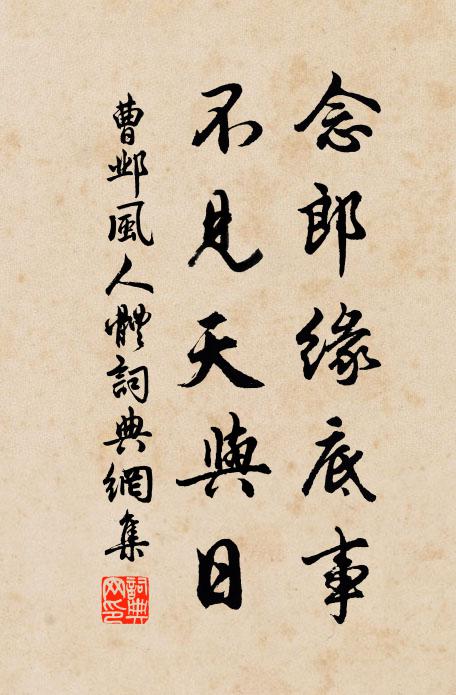 念郎緣底事
不見天與日
曹邺風人體詞典網集
詞典
网印